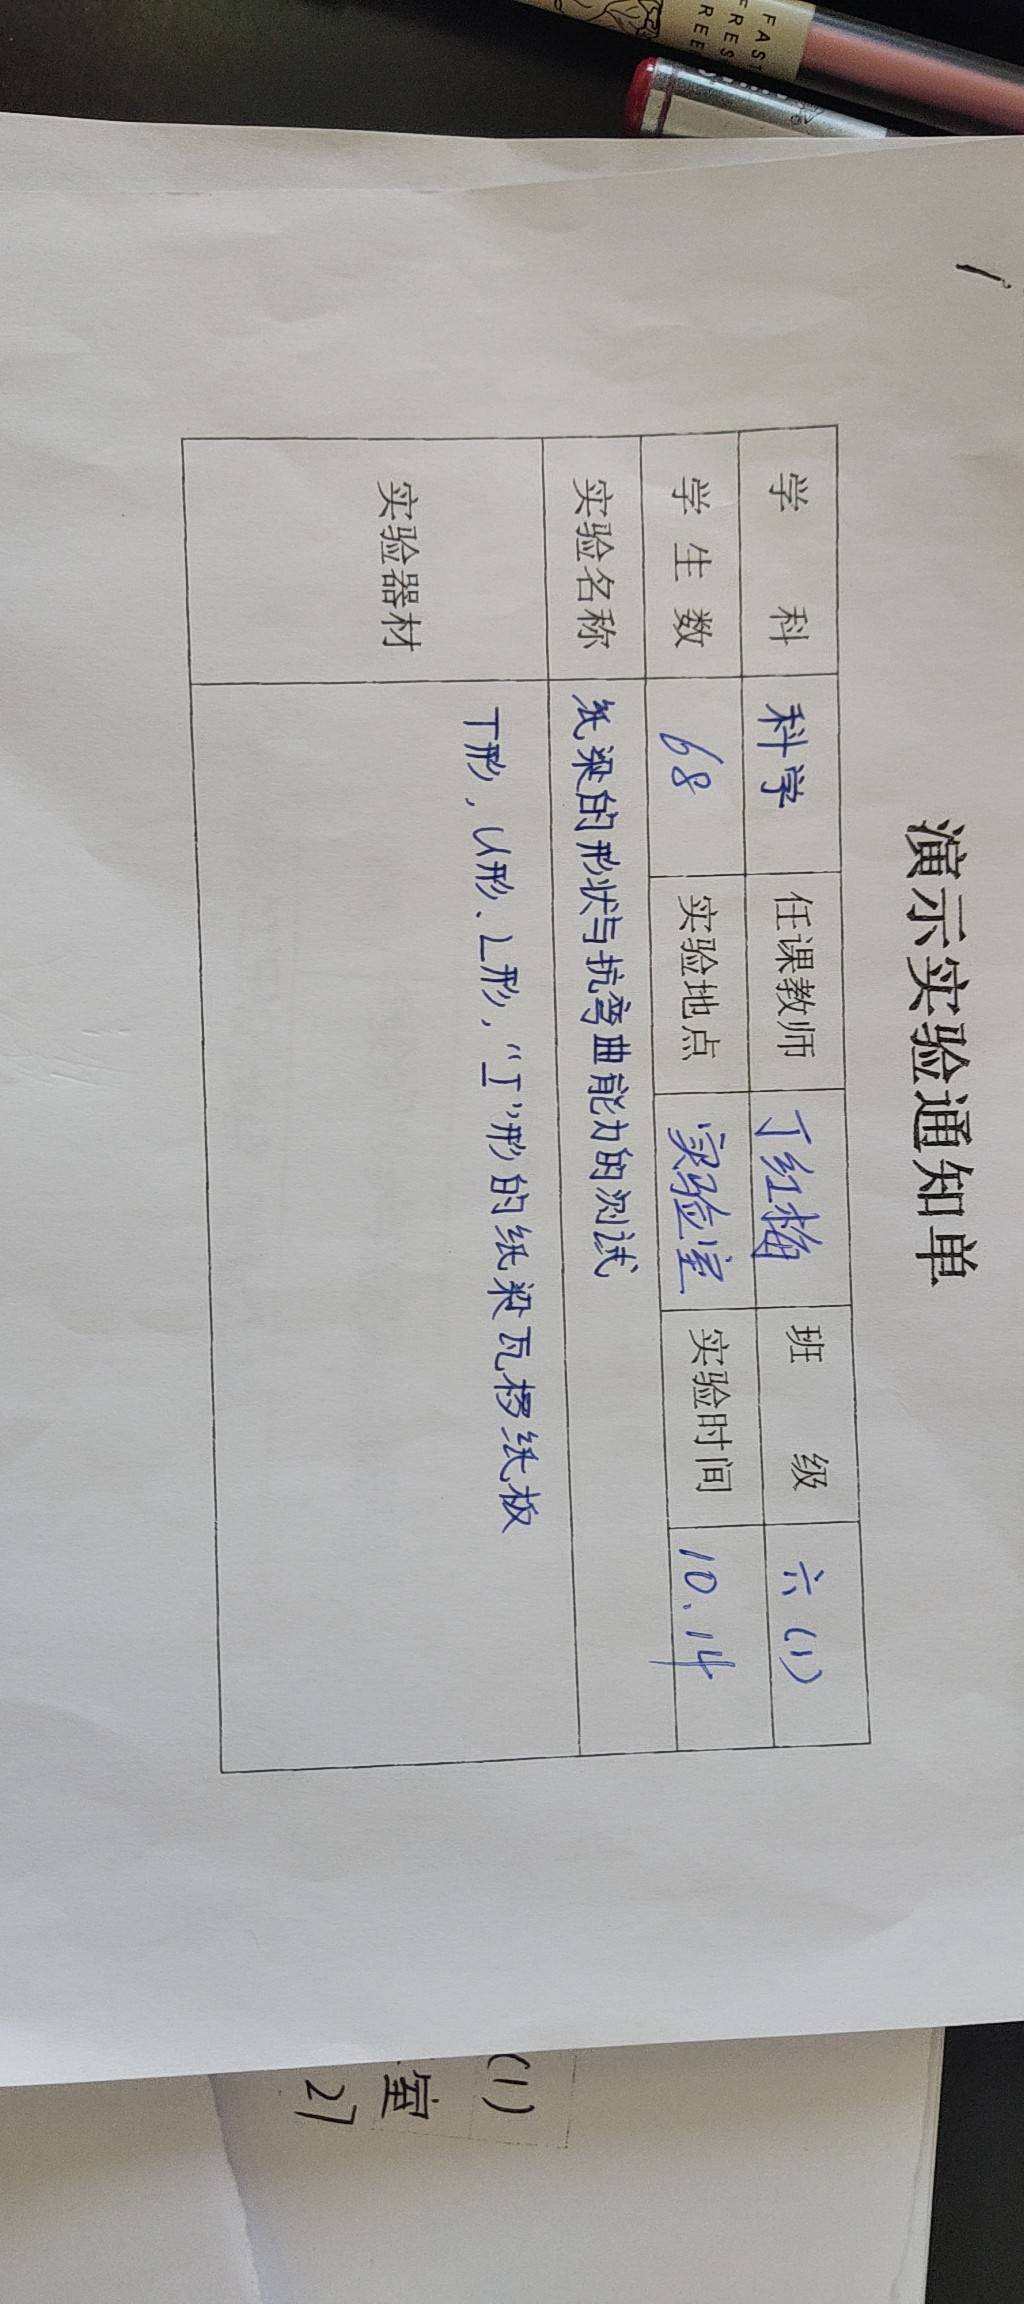 演示实验通知单
学 科 科学 任课教师 丁红梅 班 级 六(1)
学生数 68 实验地点 实验室 实验时间 10.14
实验名称 纸梁的形状与抗弯曲能力的测试
实验器材 T形,U形、L形,“工”形的纸梁瓦楞纸板
FAS
FRES
REE
(1)
室
27